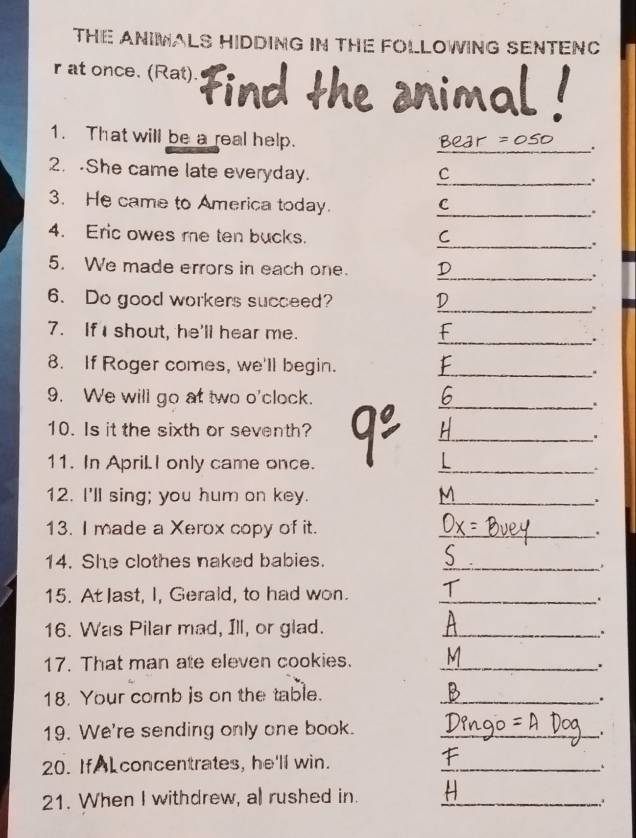 THE ANIMALS HIDDING IN THE FOLLOWING SENTENC
r at once. (Rat).
Find the animal!
1. That will be a real help. Bear = oso.
2. She came late everyday. C.
3. He came to America today. C.
4. Eric owes me ten bucks. C.
5. We made errors in each one. D.
6. Do good workers succeed? D.
7. If I shout, he'll hear me. F.
8. If Roger comes, we'll begin. F.
9. We will go at two o'clock. G.
9º
10. Is it the sixth or seventh? H.
11. In April I only came once. L.
12. I'll sing; you hum on key. M.
13. I made a Xerox copy of it. Ox = Buey.
14. She clothes naked babies. S.
15. At last, I, Gerald, to had won. T.
16. Was Pilar mad, Ill, or glad. A.
17. That man ate eleven cookies. M.
18. Your comb is on the table. B.
19. We're sending only one book. Dingo = A Dog.
20. If AL concentrates, he'll win. F.
21. When I withdrew, al rushed in. H.